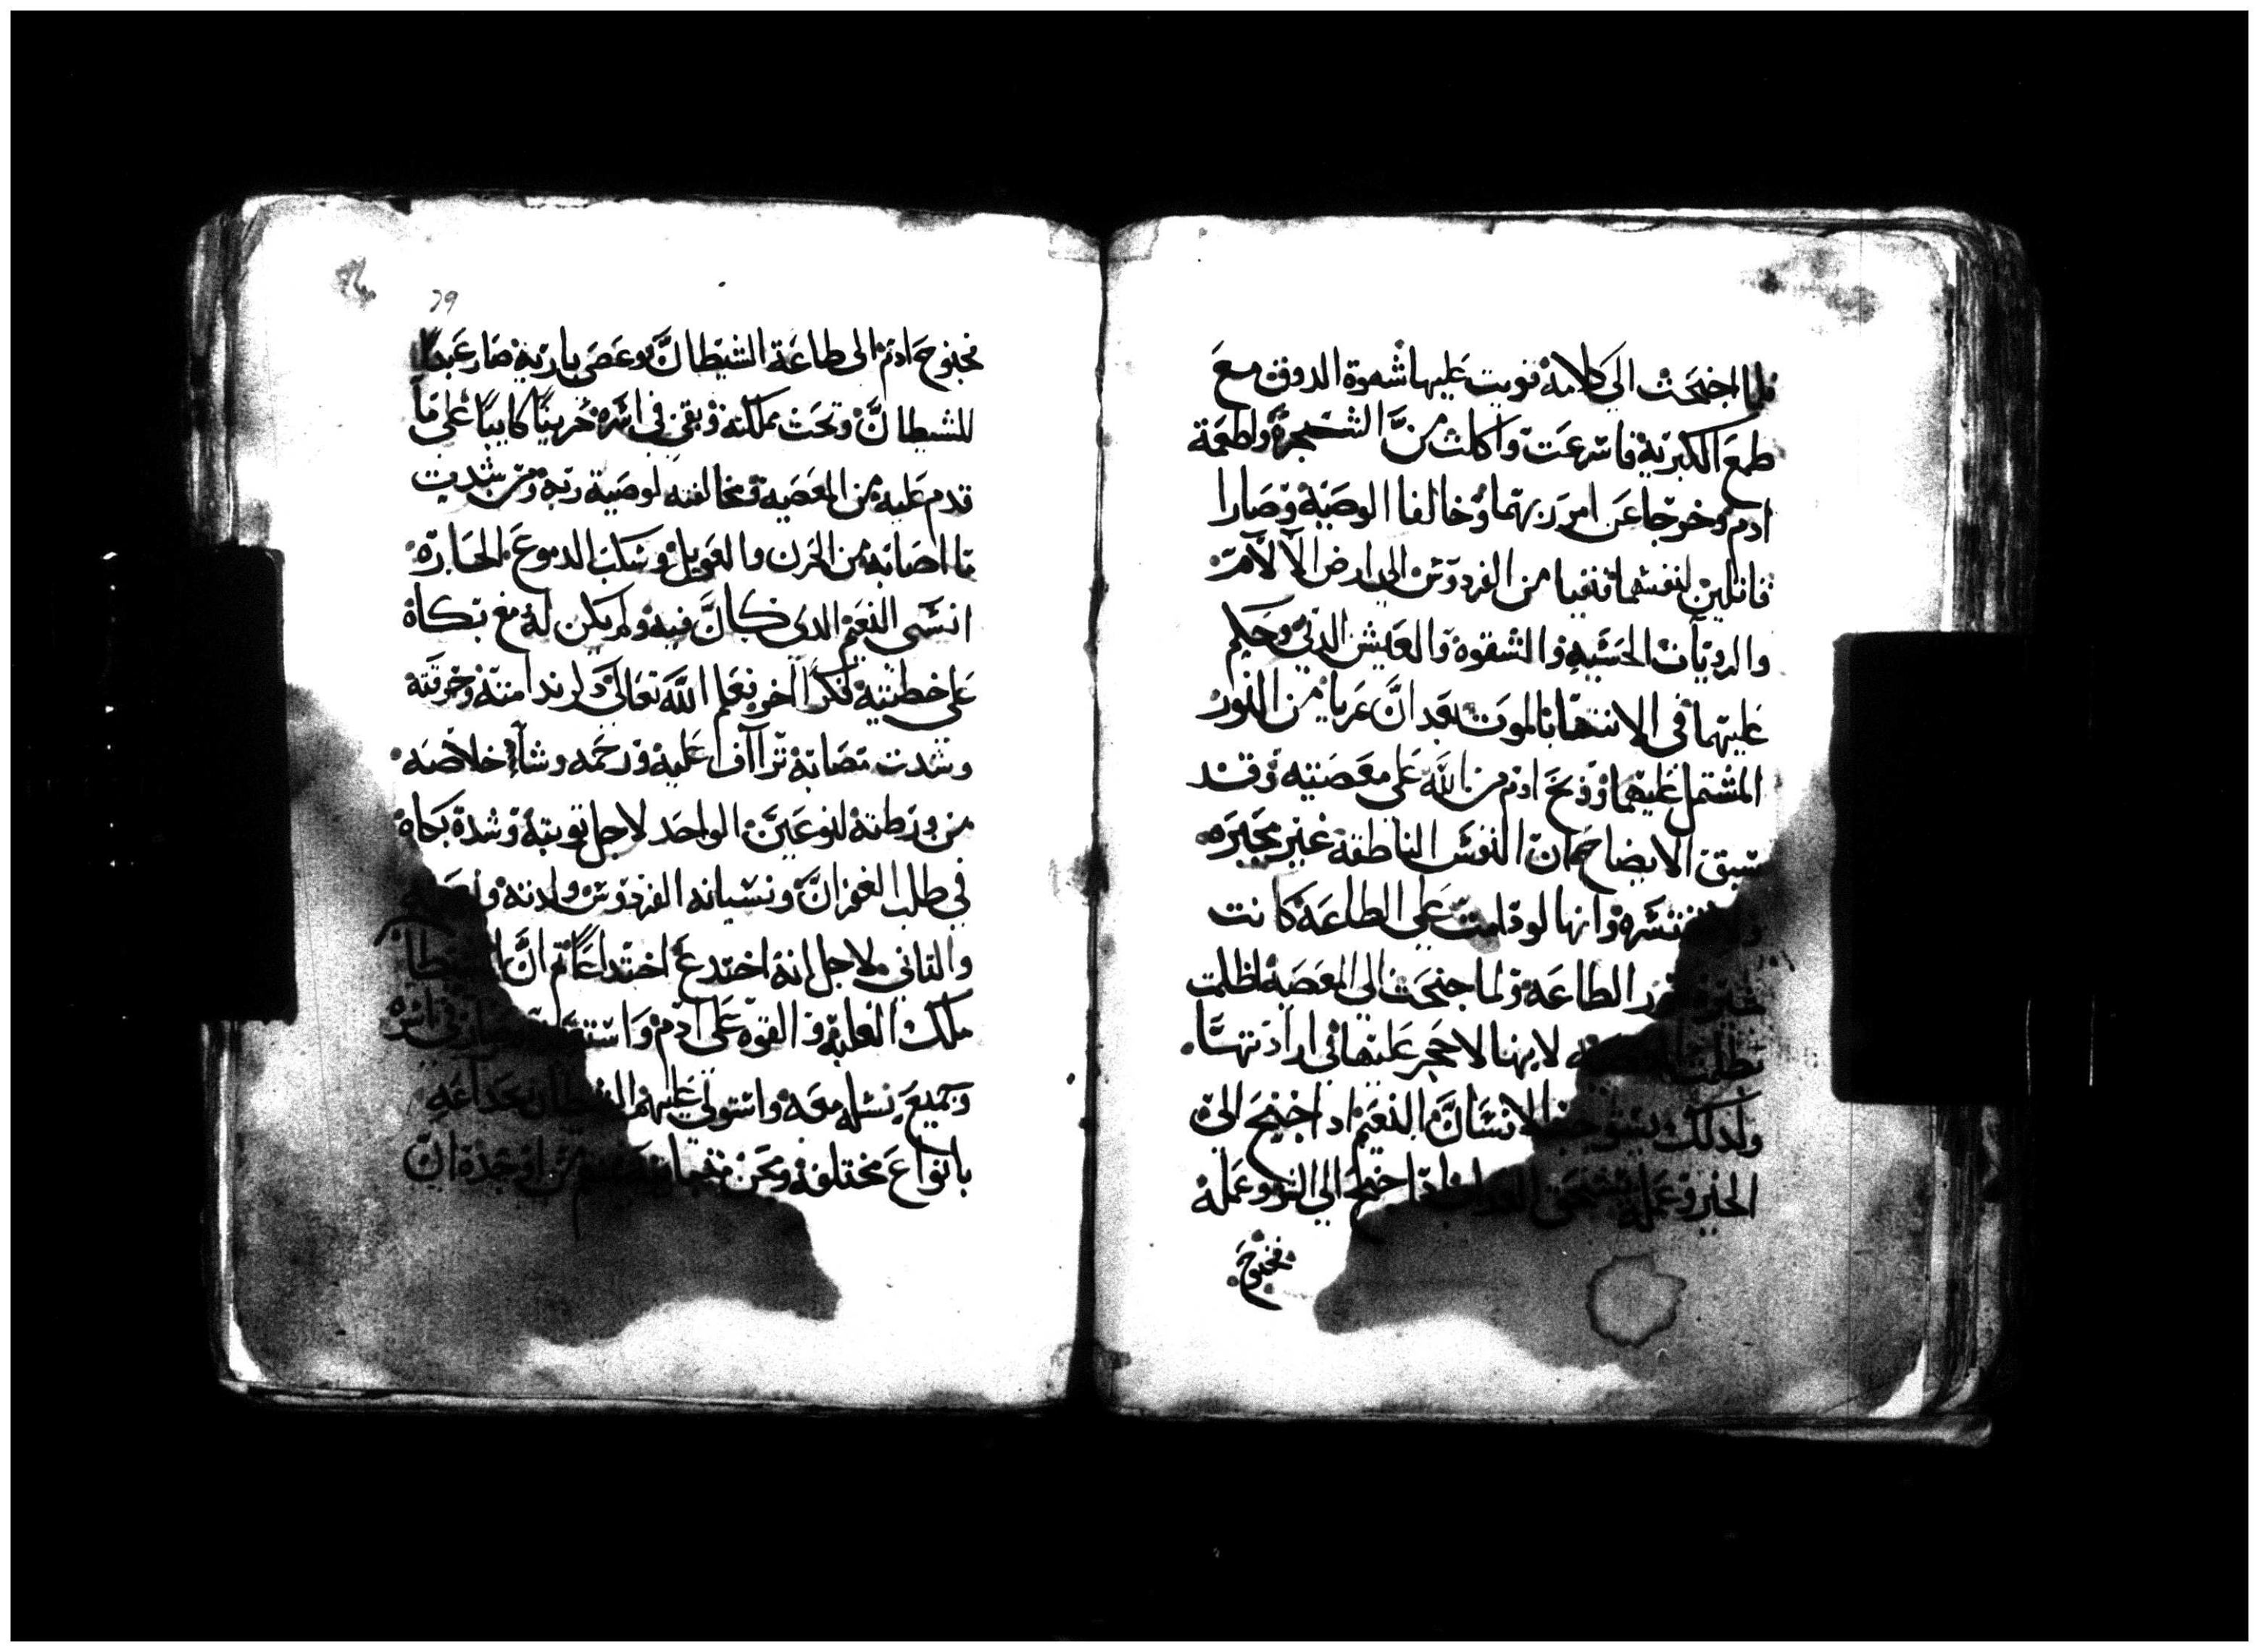 فلما اجنحت الي كلامه قويت عليها شهوة الدوق مع
طمع الكبريه فاسرعت واكلت من الشجرة واطعمة
ادم وخرجا عن امر ربهما وخالفا الوصية وصارا
قاتلين لنفسهما فنفيا من الفردوس الي ارض الالام
والرديات الخسيه والشقوه والعيش الدني وحكم
عليهما في الانتها بالموت بعد ان عريا من النور
المشتمل عليهما ووبخ ادم من الله علي معصيته وقد
سبق الايضاح ان النفس الناطقة غير مجبره
ولا وانها لو دامت علي الطاعة كانت
الطاعة ولما جنحت الي المعصية اظلمت
لانها لا حجر عليها في ارادتها
ولدلك الانسان النعيم ادا اجنح الي
الخير وعمله يستحق العداب ادا اجنح الي الشر وعمله
فجنوح
39
فجنوح ادم الى طاعة الشيطان وعصى باريه صار عبدا
للشيطان وتحت مملكته وبقي في اسره حزينا كاييبا علي ما
قدم عليه من المعصيه ومخالفته لوصية ربه ومن شديت
ما اصابه من الحزن والعويل وسكب الدموع الحاره
انسى النعيم الدى كان فيه ولم يكن له مع بكاه
علي خطيته فكرا اخر فعلم الله تعالى ندامته وحرقته
وشدت مصابه تراآف عليه ورحمه وشآ خلاصه
من ورطته لنوعين الواحد لاجل توبته وشدة بكاه
في طلب الغفران ونسيانه الفردوس ولدته
والتاني لاجل انه اختدع اختداعا تم ان الشيطا
ملك الغلبه و القوه على ادم في اسره
وجميع نسله معه واستولى عليهم الشيطان بخداعه
بانواع مختلفه ونحن اوجده ان